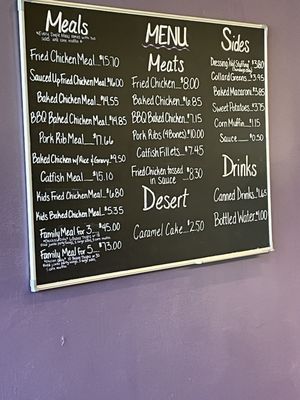 Meals
Fried Chicken Meal...$15.70
Sauced Up Fried Chicken Meal...$16.00
Baked Chicken Meal...$14.55
BBQ Baked Chicken Meal...$14.85
Pork Rib Meal...$17.66
Baked Chicken w/ Rice & Gravy...$9.50
Catfish Meal...$15.10
Kids Fried Chicken Meal...$6.80
Kids Baked Chicken Meal...$5.35
Family Meal for 3...$45.00
Family Meal for 5...$73.00
MENU
Meats
Fried Chicken...$8.00
Baked Chicken...$6.85
BBQ Baked Chicken...$7.15
Pork Ribs (4 Bones)...$10.00
Catfish Fillets...$7.45
Fried Chicken tossed in Sauce...$8.30
Desert
Caramel Cake...$2.50
Sides
Dressing Not Stuffing...$3.80
Collard Greens...$3.95
Baked Macaroni...$3.85
Sweet Potatoes...$3.75
Corn Muffin...$1.15
Sauce...$0.50
Drinks
Canned Drinks...$1.65
Bottled Water...$1.00